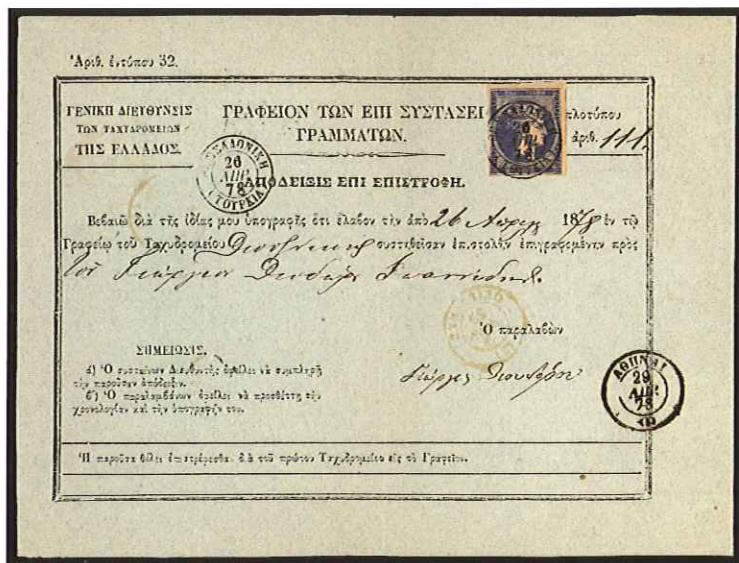 Ἀριθ. ἐντύπου 32.
ΓΕΝΙΚΗ ΔΙΕΥΘΥΝΣΙΣ
ΤΩΝ ΤΑΧΥΔΡΟΜΕΙΩΝ
ΤΗΣ ΕΛΛΑΔΟΣ.
ΓΡΑΦΕΙΟΝ ΤΩΝ ΕΠΙ ΣΥΣΤΑΣΕΙ
ΓΡΑΜΜΑΤΩΝ.
πλοτύπου
ἀριθ. 111.
26
ΑΠΡ
78
(ΤΟΥΡΚΙΑ)
ΑΠΟΔΕΙΞΙΣ ΕΠΙ ΕΠΙΣΤΡΟΦΗ.
Βεβαιῶ διὰ τῆς ἰδίας μου ὑπογραφῆς ὅτι ἔλαβον τὴν ἀπὸ 26 1878 ἐν τῷ
Γραφείῳ τοῦ Ταχυδρομείου συστηθεῖσαν ἐπιστολὴν ἐπιγραφομένην πρὸς
τὸν
Ὁ παραλαβὼν
ΣΗΜΕΙΩΣΙΣ.
ά) Ὁ συσταίνων Διευθυντὴς ὀφείλει νὰ συμπληρῇ
τὴν παροῦσαν ἀπόδειξιν.
β΄) Ὁ παραλαμβάνων ὀφείλει νὰ προσθέτῃ τὴν
χρονολογίαν καὶ τὴν ὑπογραφήν του.
ΑΘΗΝΑΙ
29
ΑΠΡ
78
(1)
Ἡ παροῦσα θέλει ἐπιστρέφεσθαι διὰ τοῦ πρώτου Ταχυδρομείου εἰς τὸ Γραφεῖον.